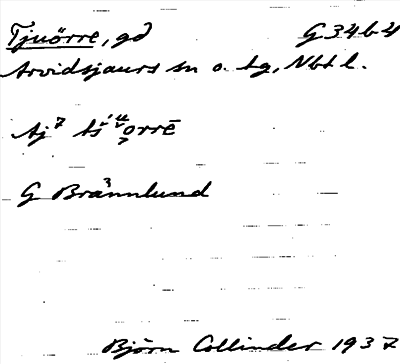 Tjuörre, gd G 34 b 4
Arvidsjaurs sn o. tg, Nbtl.
G Brännlund
Björn Collinder 1937